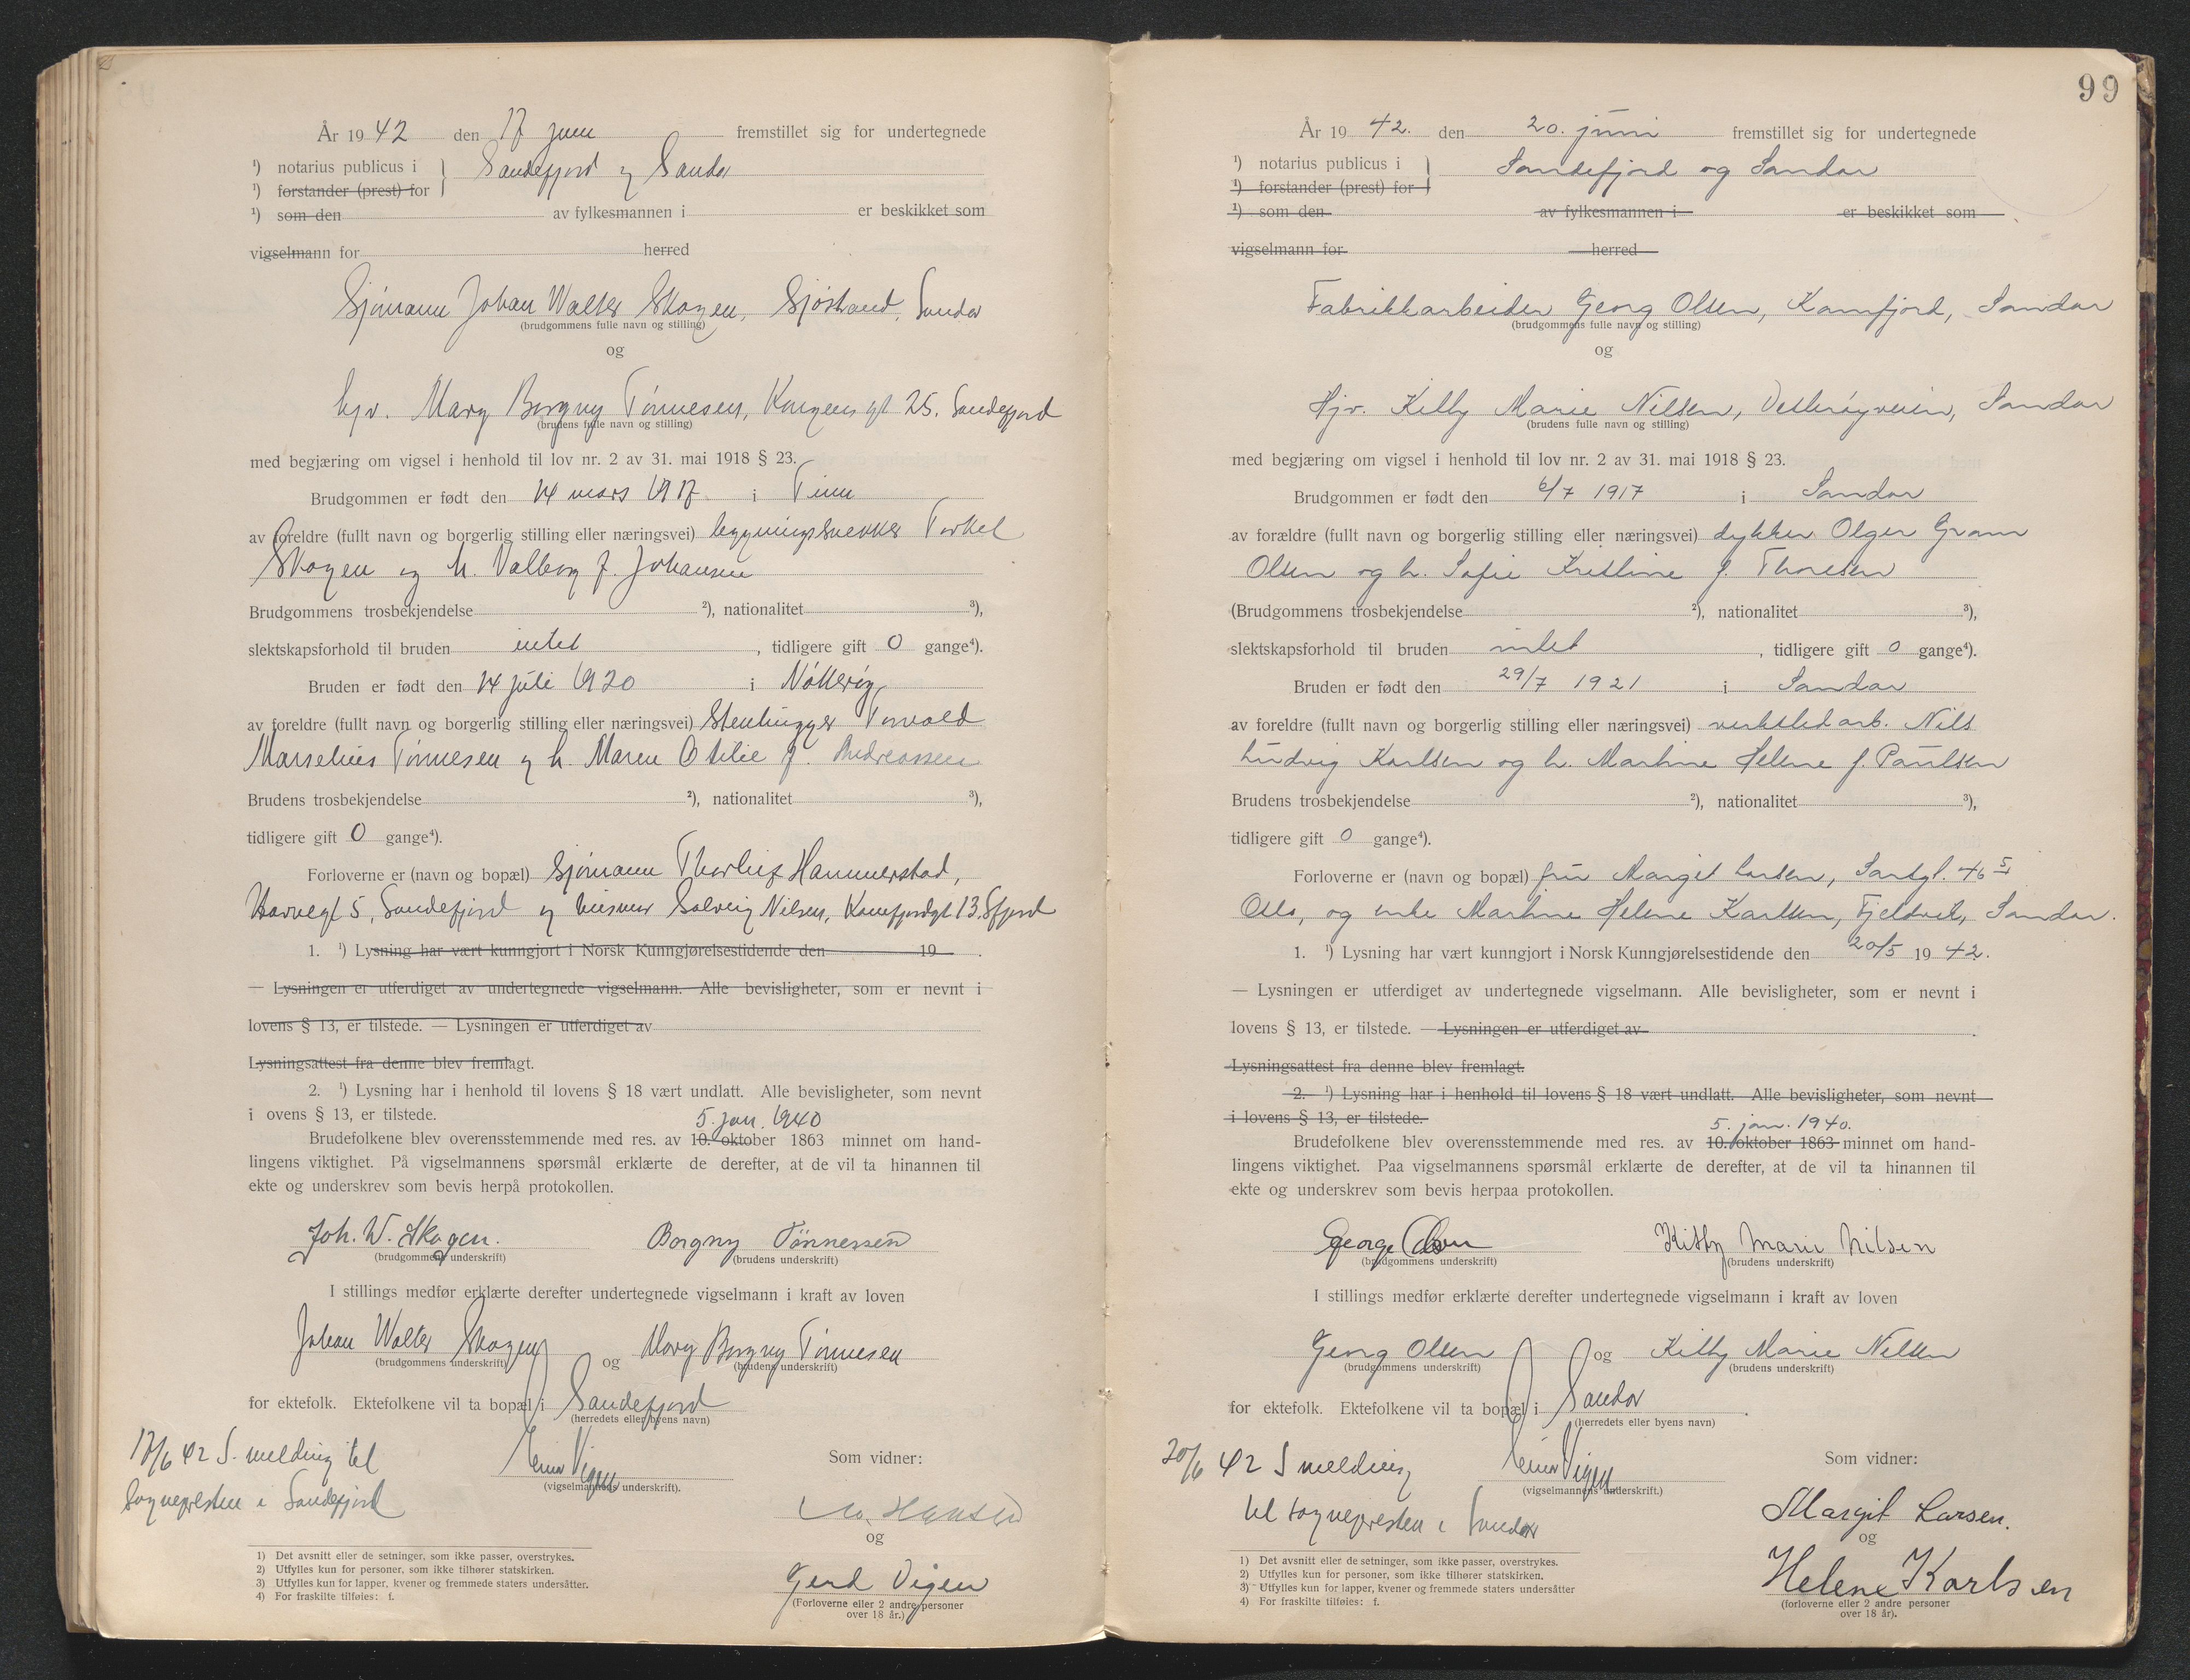 År 1942 den 17 juni fremstillet sig for undertegnede
¹) notarius publicus i } Sandefjord og Sandar
¹) forstander (prest) for
¹) som den av fylkesmannen i er beskikket som
vigselmann for herred
Sjømann Johan Walter Skogen, Sjøstrand, Sandar
(brudgommens fulle navn og stilling)
og
hjv. Mary Borgny Tønnesen, Kongens gt 25. Sandefjord
(brudens fulle navn og stilling)
med begjæring om vigsel i henhold til lov nr. 2 av 31. mai 1918 § 23.
Brudgommen er født den 14 mars 1917 i Tinn
av foreldre (fullt navn og borgerlig stilling eller næringsvei) bygningssnekker Torkel
Skogen og h. Valborg f. Johansen
Brudgommens trosbekjendelse ²), nationalitet ³),
slektskapsforhold til bruden intet, tidligere gift 0 gange⁴).
Bruden er født den 14 juli 1920 i Nøtterøy,
av foreldre (fullt navn og borgerlig stilling eller næringsvei) Stenhugger Torvald
Marselius Tønnesen og h. Maren Otilie f. Andreassen
Brudens trosbekjendelse ²), nationalitet ³),
tidligere gift 0 gange⁴).
Forloverne er (navn og bopæl) sjømann Thorleif Hammerstad,
gt 5, Sandefjord og husmor Solveig Nilsen, Kamfjordgt 13. Sfjord
1. ¹) Lysning har vært kunngjort i Norsk Kunngjørelsestidende den 19 .
— Lysningen er utferdiget av undertegnede vigselmann. Alle bevisligheter, som er nevnt i
lovens § 13, er tilstede. — Lysningen er utferdiget av
Lysningsattest fra denne blev fremlagt.
2. ¹) Lysning har i henhold til lovens § 18 vært undlatt. Alle bevisligheter, som nevnt
i ovens § 13, er tilstede.
5. jan. 1940
Brudefolkene blev overensstemmende med res. av 10. oktober 1863 minnet om hand-
lingens viktighet. På vigselmannens spørsmål erklærte de derefter, at de vil ta hinannen til
ekte og underskrev som bevis herpå protokollen.
Joh. W. Skogen. Borgny Tønnessen
(brudgommens underskrift) (brudens underskrift)
I stillings medfør erklærte derefter undertegnede vigselmann i kraft av loven
Johan Walter Skogen og Mary Borgny Tønnesen
(brudgommens underskrift) (brudens underskrift)
for ektefolk. Ektefolkene vil ta bopæl i Sandefjord
(herredets eller byens navn)
17/6 42 S. melding til
sognepresten i Sandefjord
Einar Vigen
(vigselmannens underskrift).
Som vidner:
M. Hansen
og
Gerd Vigen
(Forloverne eller 2 andre personer
over 18 år.)
1) Det avsnitt eller de setninger, som ikke passer, overstrykes.
2) Utfylles kun for personer, som ikke tilhører statskirken.
3) Utfylles kun for lapper, kvener og fremmede staters undersåtter.
4) For fraskilte tilføies: f.
99
År 1942. den 20. juni fremstillet sig for undertegnede
¹) notarius publicus i } Sandefjord og Sandar
¹) forstander (prest) for
¹) som den av fylkesmannen i er beskikket som
vigselmann for herred
Fabrikkarbeider Georg Olsen, Kamfjord, Sandar
(brudgommens fulle navn og stilling)
og
Hjv. Kitty Marie Nilsen, Vesterøyveien, Sandar
(brudens fulle navn og stilling)
med begjæring om vigsel i henhold til lov nr. 2 av 31. mai 1918 § 23.
Brudgommen er født den 6/7 1917 i Sandar
av forældre (fullt navn og borgerlig stilling eller næringsvei) dykker Olger Gram
Olsen og h. Sofie Kristine f. Thoresen
(Brudgommens trosbekjendelse ²), nationalitet ³),
slektskapsforhold til bruden intet, tidligere gift 0 gange⁴).
Bruden er født den 29/7 1921 i Sandar
av foreldre (fullt navn og borgerlig stilling eller næringsvei) verkstedarb. Nils
Ludvig Karlsen og h. Martine Helene f. Paulsen
Brudens trosbekjendelse ²), nationalitet ³),
tidligere gift 0 gange⁴).
Forloverne er (navn og bopæl) fru Margit Larsen, 46
Oslo, og enke Martine Helene Karlsen, Fjeldvik, Sandar.
1. ¹) Lysning har vært kunngjort i Norsk Kunngjørelsestidende den 20/5 1942.
— Lysningen er utferdiget av undertegnede vigselmann. Alle bevisligheter, som er nevnt i
lovens § 13, er tilstede. — Lysningen er utferdiget av .
Lysningsattest fra denne blev fremlagt.
2. ¹) Lysning har i henhold til lovens § 18 vært undlatt. Alle bevisligheter, som nevnt
i lovens § 13, er tilstede.
5. jan. 1940.
Brudefolkene blev overensstemmende med res. av 10. oktober 1863 minnet om hand-
lingens viktighet. Paa vigselmannens spørsmål erklærte de derefter, at de vil ta hinannen til
ekte og underskrev som bevis herpaa protokollen.
George Olsen Kitty Marie Nilsen
(brudgommens underskrift) (brudens underskrift)
I stillings medfør erklærte derefter undertegnede vigselmann i kraft av loven
Georg Olsen og Kitty Marie Nilsen
(brudgommens underskrift) (brudens underskrift)
for ektefolk. Ektefolkene vil ta bopæl i Sandar
(herredets eller byens navn)
20/6 42 S melding
til sognepresten i Sandar
Einar Vigen
(vigselmannens underskrift.)
Som vidner:
Margit Larsen.
og
Helene Karlsen
(forloverne eller 2 andre personer
over 18 år).
1) Det avsnitt eller de setninger, som ikke passer, overstrykes.
2) Utfylles kun for personer, som ikke tilhører statskirken.
3) Utfylles kun for lapper, kvener og fremmede staters undersåtter
4) For fraskilte tilføies: f.